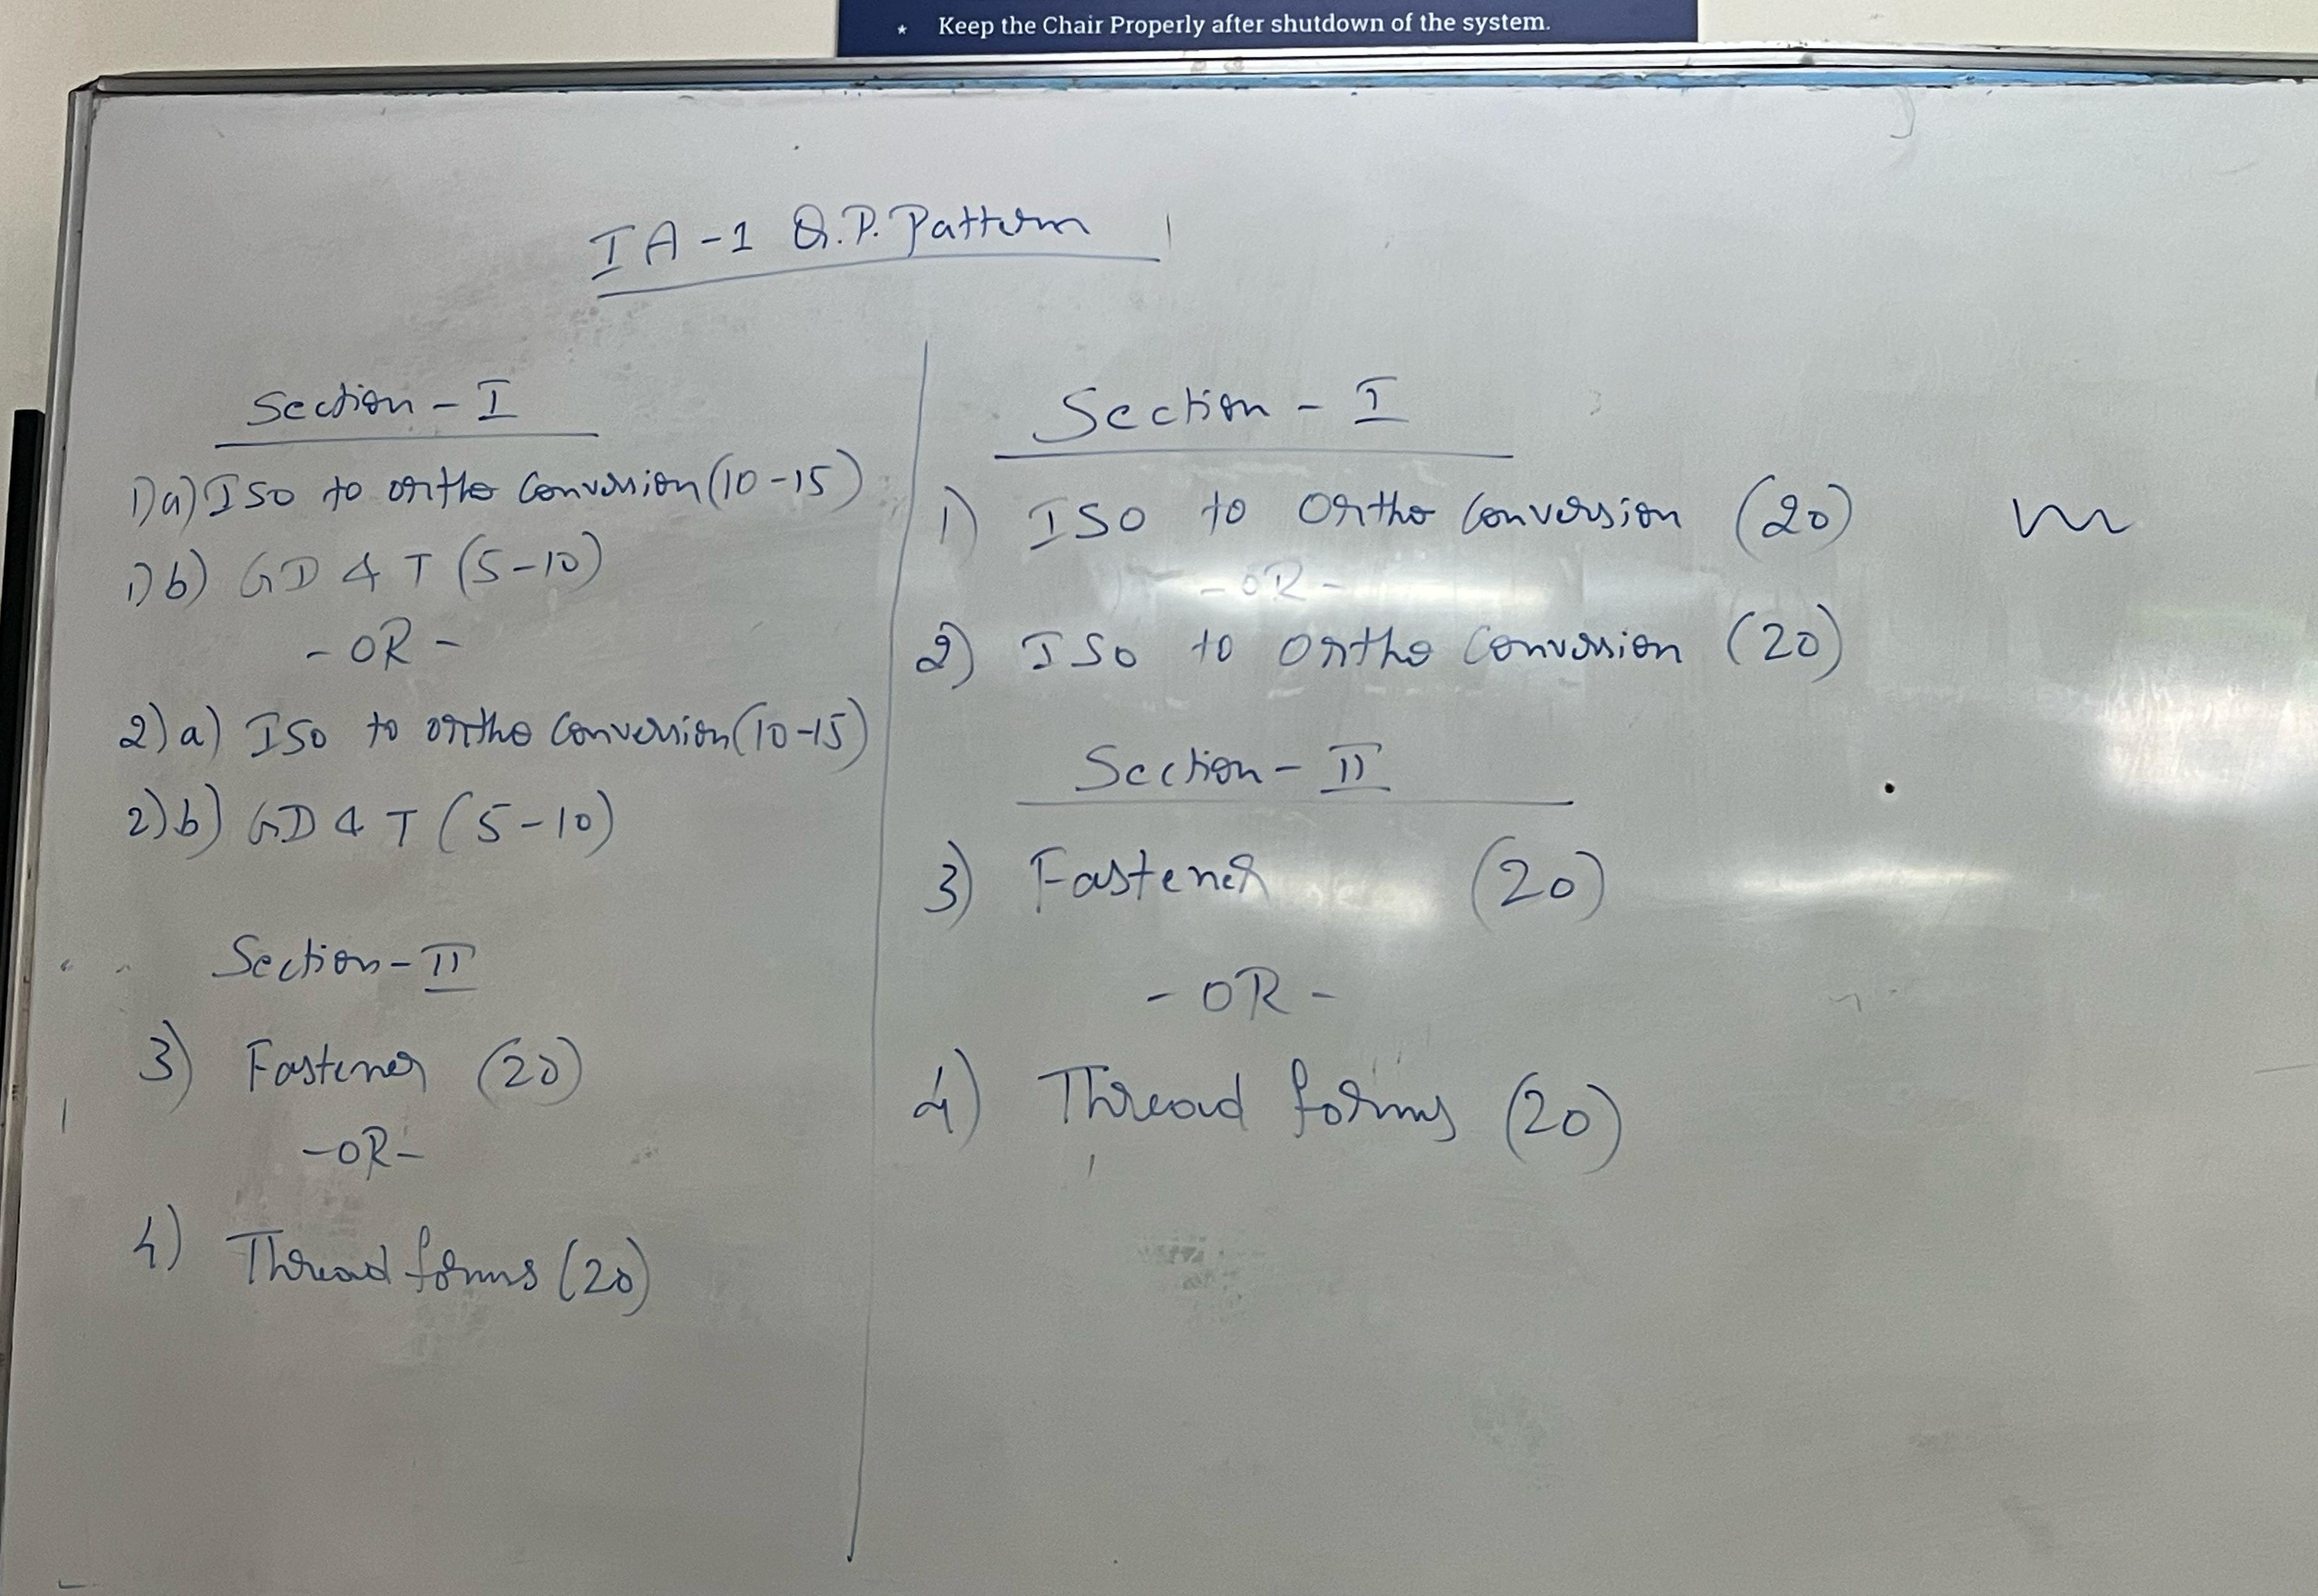 * Keep the Chair Properly after shutdown of the system.
IA-1 Q.P. Pattern
Section - I
1) a) ISO to ortho conversion (10-15)
1) b) GD & T (5-10)
- OR -
2) a) ISO to ortho conversion (10-15)
2) b) GD & T (5-10)
Section - II
3) Fastener (20)
- OR -
4) Thread forms (20)
Section - I
1) ISO to Ortho conversion (20)
- OR -
2) ISO to Ortho conversion (20)
Section - II
3) Fastener (20)
- OR -
4) Thread forms (20)